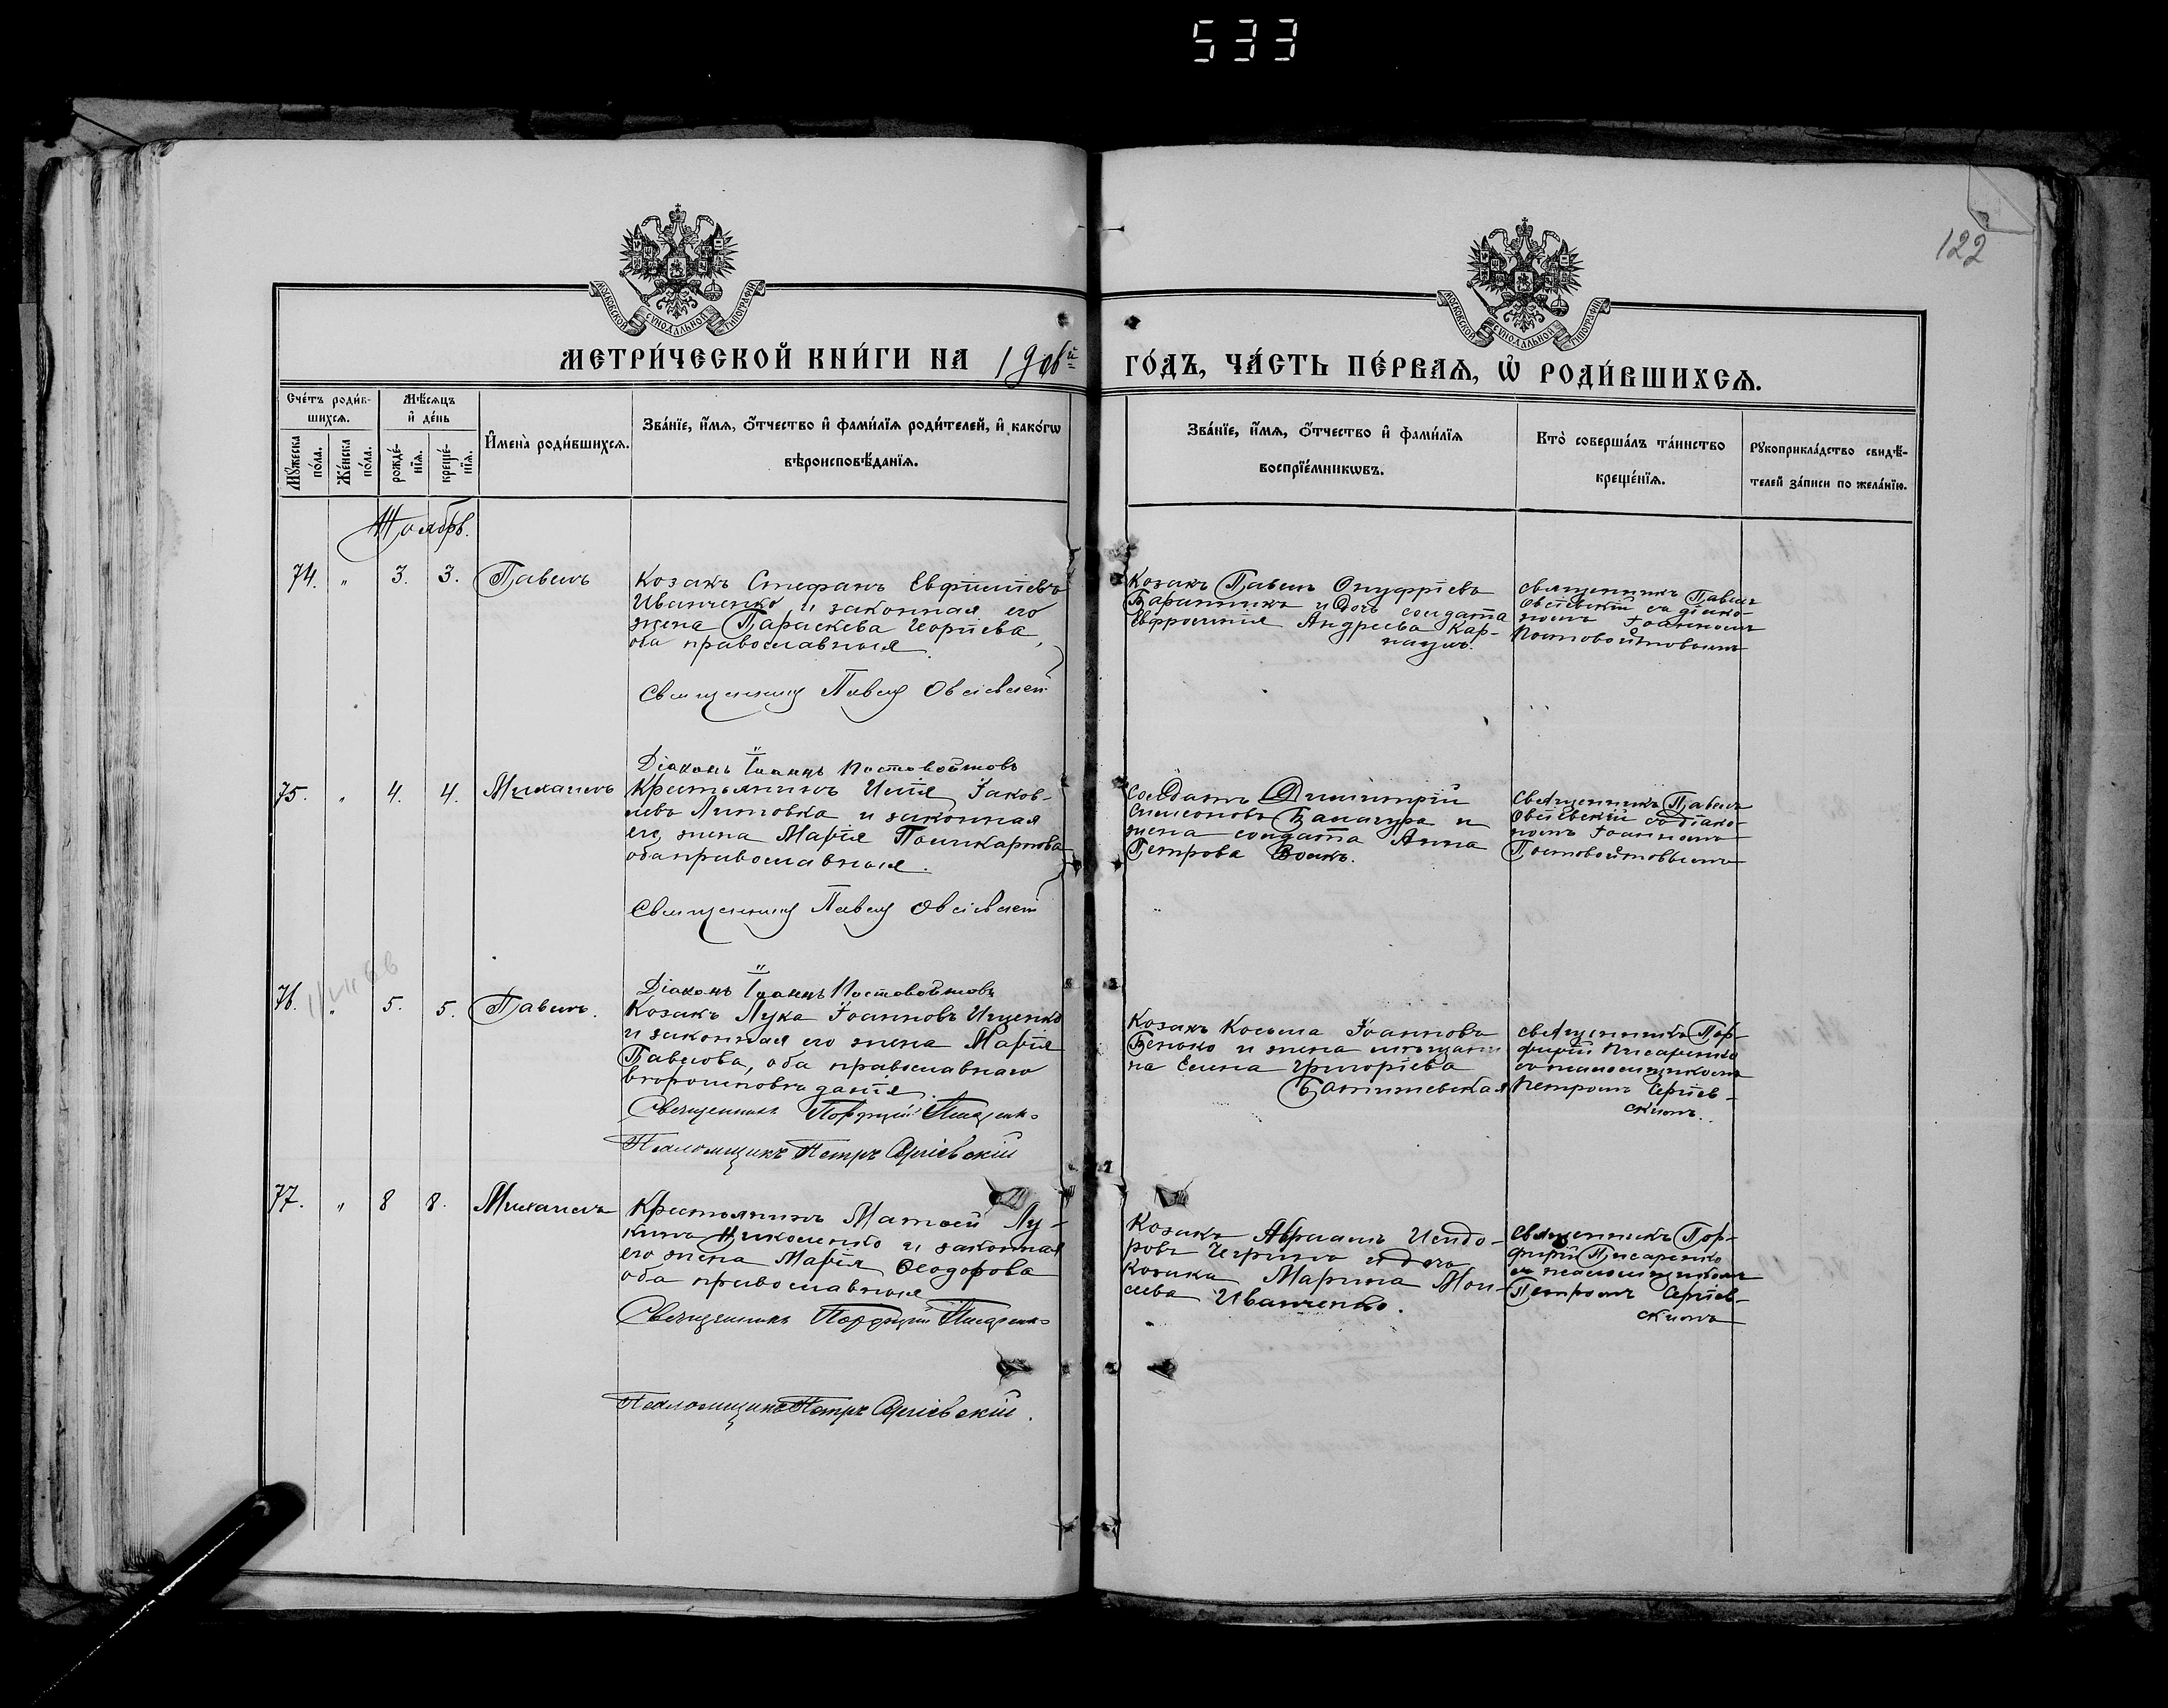 533
122
МОСКОВСКОЙ СУНОДАЛЬНОЙ ТИПОГРАФІИ
МОСКОВСКОЙ СУНОДАЛЬНОЙ ТИПОГРАФІИ
МЕТРИ́ЧЕСКОЙ КНИ́ГИ НА
ГО́ДЪ, ЧА́СТЬ ПЕ́РВАѦ, Ѡ РОДИ́ВШИХСѦ.
Сче́тъ роди́в-
шихсѧ.
Мꙋ́жеска
по́ла.
Же́нска
по́ла.
Мѣ́сѧцъ
и҆ де́нь
рожде́-
нїѧ.
креще́-
нїѧ.
И҆мена̀ роди́вшихсѧ.
Зва́нїе, и҆́мѧ, ѻ҆́тчество и҆ фами́лїѧ роди́телей, и҆ како́гѡ
вѣроисповѣ́данїѧ.
Зва́нїе, и҆́мѧ, ѻ҆́тчество и҆ фами́лїѧ
воспрїе́мникѡвъ.
Кто̀ соверша́лъ та́инство
креще́нїѧ.
Рꙋкоприкла́дство свидѣ́-
телей за́писи по жела́нїю.
Ноябрь.
74. " 3. 3. Павелъ
Козакъ Стефанъ Евфиміевъ
Иванченко и законная его
жена Параскева Георгіева,
оба православныя.
Священникъ Павелъ Овсіевскій
Діаконъ Іоаннъ Постовойтовъ
Козакъ Павелъ Онуфріевъ
и дочь солдата
Евфросинія Андреева Кар-
Священникъ Павелъ
Овсіевскій съ діако-
номъ Іоанномъ
Постовойтовымъ
75. " 4. 4. Михаилъ
Крестьянинъ Илія Іаков-
левъ Литовка и законная
его жена Марія Поликарпова
оба православныя.
Священникъ Павелъ Овсіевскій
Діаконъ Іоаннъ Постовойтовъ
Солдатъ Димитрій
Симеоновъ Балагура и
жена солдата Анна
Петрова Волкъ.
Священникъ Павелъ
Овсіевскій съ діако-
номъ Іоанномъ
Постовойтовымъ
76. " 5. 5. Павелъ.
Козакъ Лука Іоанновъ Ищенко
и законная его жена Марія
Павлова, оба православнаго
вѣроисповѣданія.
Священникъ Порфирій Писаренко
Псаломщикъ Петръ Сергіевскій
Козакъ Косьма Іоанновъ
и жена мѣщани-
на Елена Григоріева
Священникъ Пор-
фирій Писаренко
съ псаломщикомъ
Петромъ Сергіев-
скимъ.
77. " 8 8. Михаилъ
Крестьянинъ Матѳей Лу-
кинъ Николенко и законная
его жена Марія Ѳеодорова
оба православныя
Священникъ Порфирій Писаренко
Псаломщикъ Петръ Сергіевскій.
Козакъ Авраамъ Исидо-
ровъ и дочь
козака Марина Мои-
сеева Иванченко.
Священникъ Пор-
фирій Писаренко
съ псаломщикомъ
Петромъ Сергіев-
скимъ